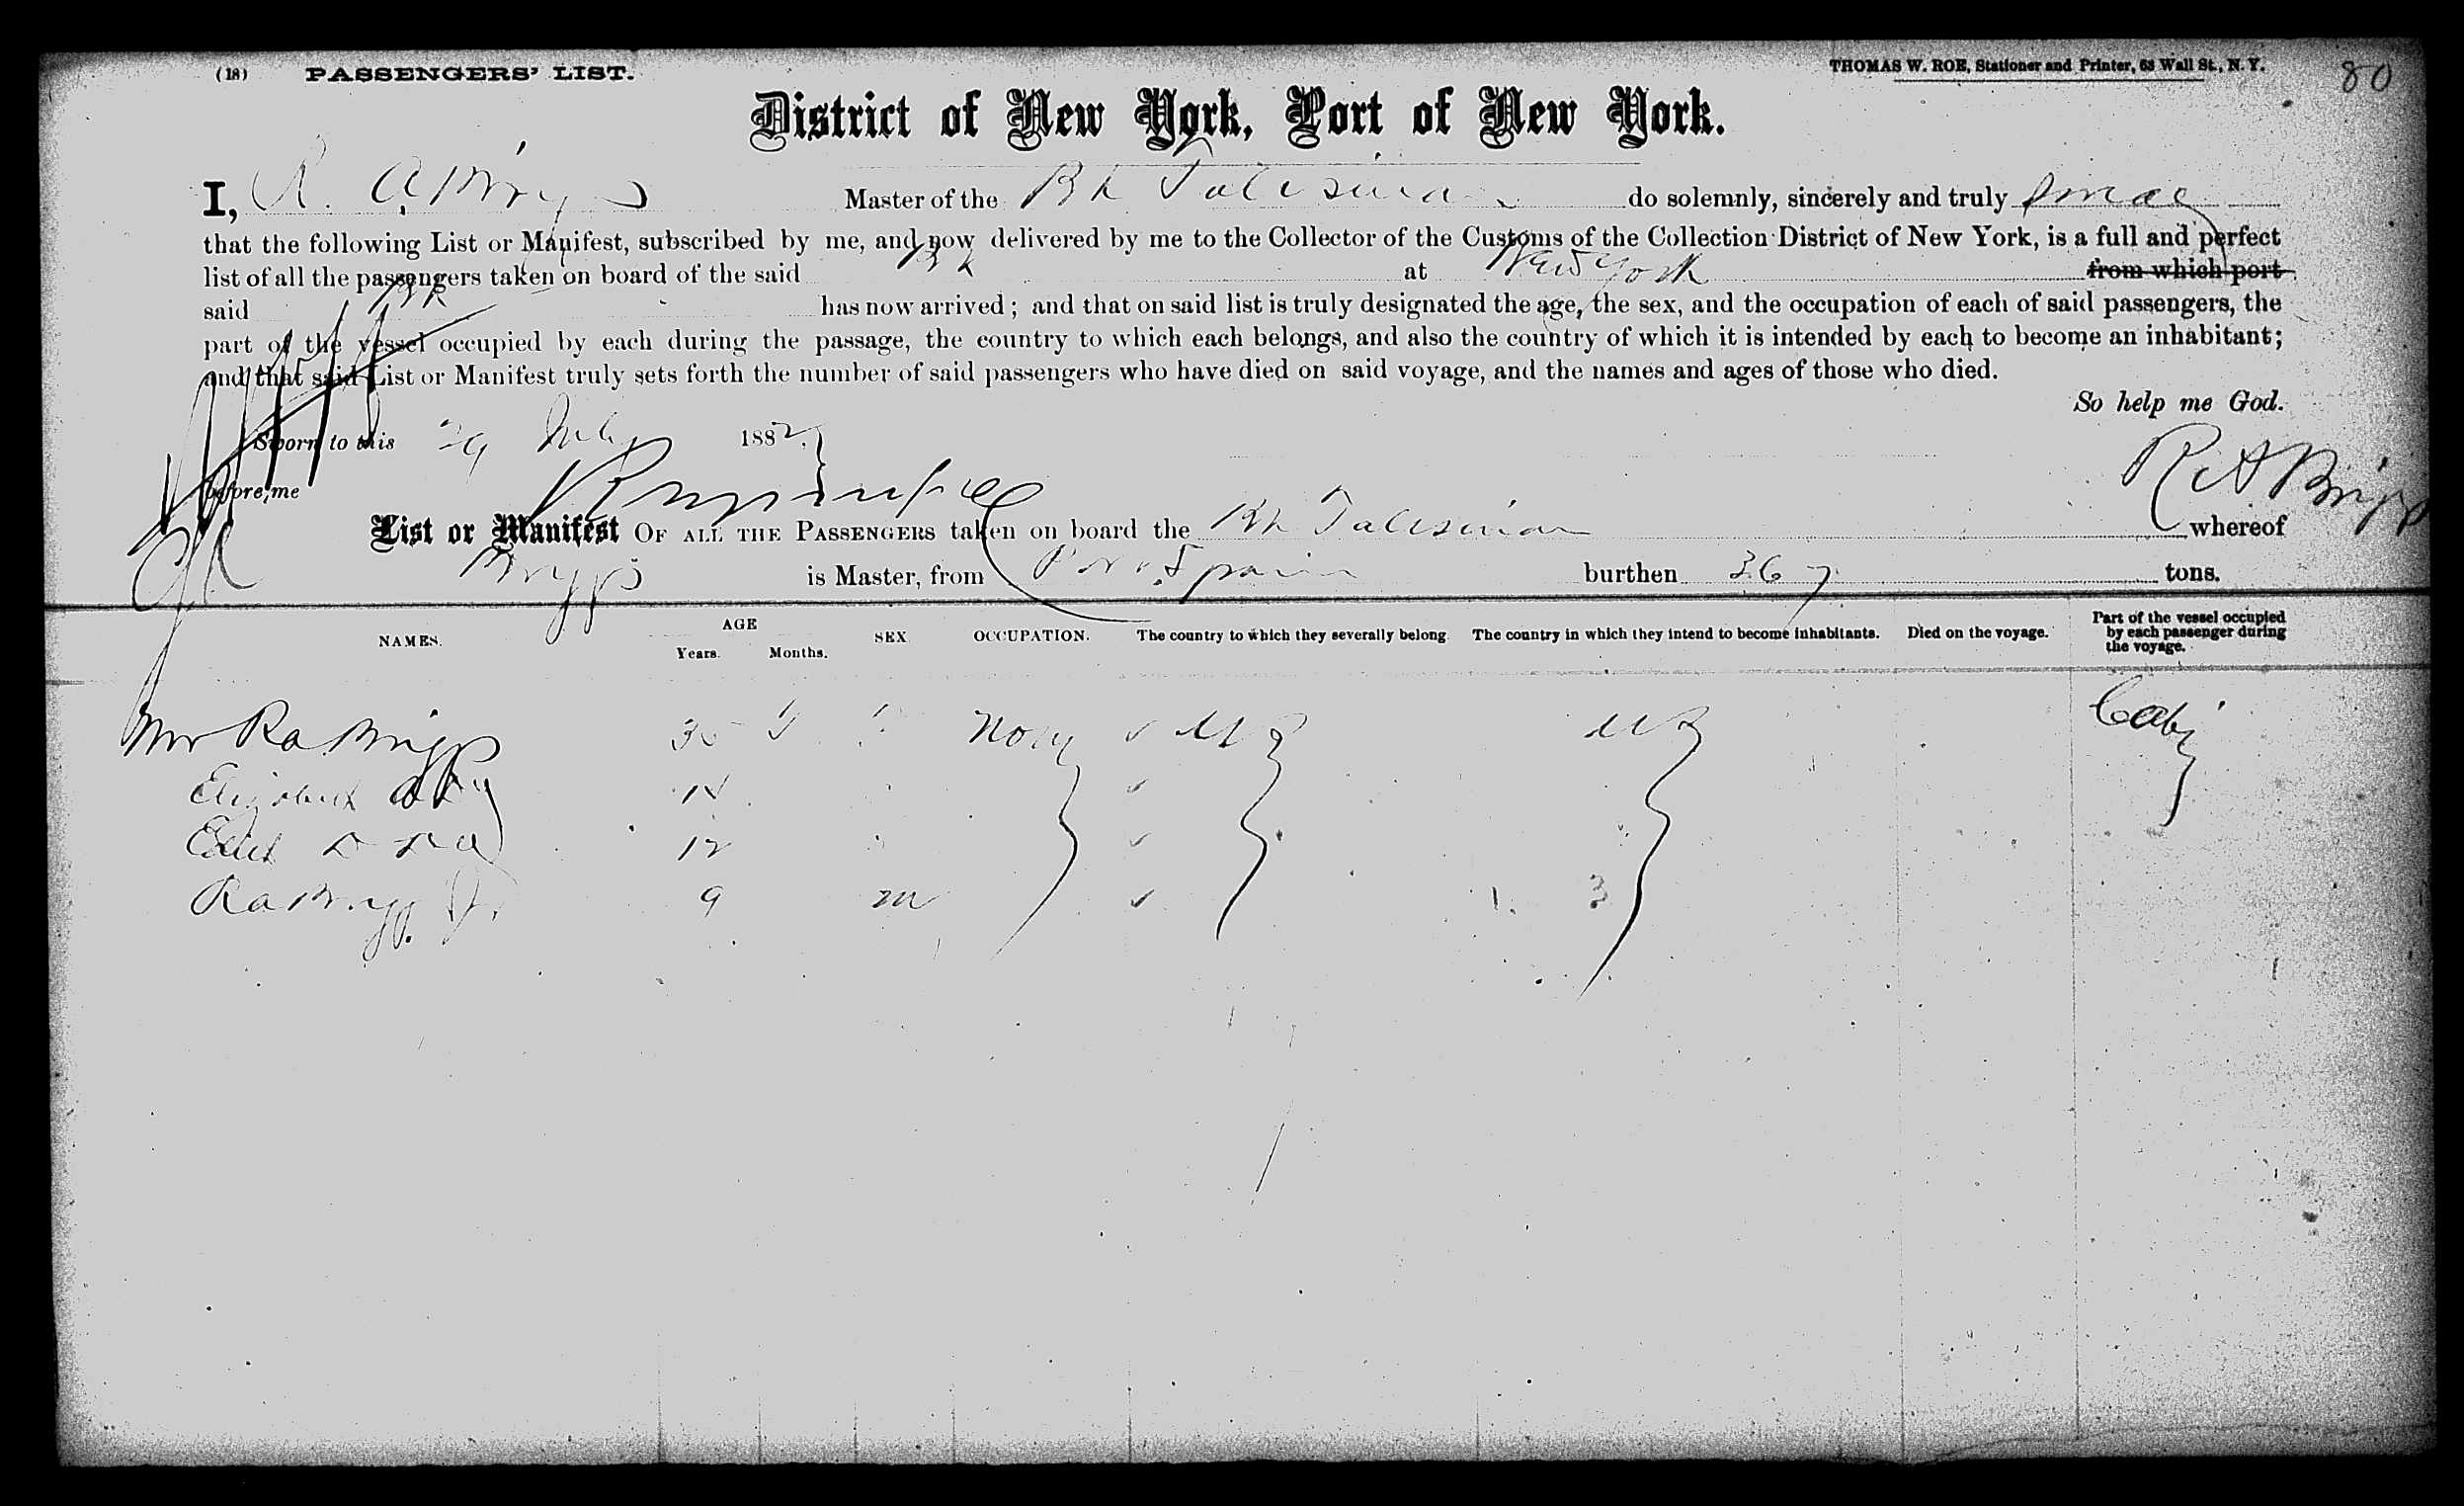 (18) PASSENGERS' LIST.
THOMAS W. ROE, Stationer and Printer, 63 Wall St., N. Y.
80
District of New York, Port of New York.
I, R. A. Briggs Master of the Bk Taliesin do solemnly, sincerely and truly swear
that the following List or Manifest, subscribed by me, and now delivered by me to the Collector of the Customs of the Collection District of New York, is a full and perfect
list of all the passengers taken on board of the said Bk at New York from which port
said Bk has now arrived; and that on said list is truly designated the age, the sex, and the occupation of each of said passengers, the
part of the vessel occupied by each during the passage, the country to which each belongs, and also the country of which it is intended by each to become an inhabitant;
and that said List or Manifest truly sets forth the number of said passengers who have died on said voyage, and the names and ages of those who died.
So help me God.
Sworn to this 29 July 1882.
R A Briggs
before me
List or Manifest OF ALL THE PASSENGERS taken on board the Bk whereof
Briggs is Master, from Port Spain burthen 367 tons.
NAMES. AGE Years. Months. SEX OCCUPATION. The country to which they severally belong The country in which they intend to become inhabitants. Died on the voyage. Part of the vessel occupied by each passenger during the voyage.
Mrs R A Briggs 35 None U S U S Cabin
Elizabeth 14
12
R A Briggs Jr. 9 m 1. 3